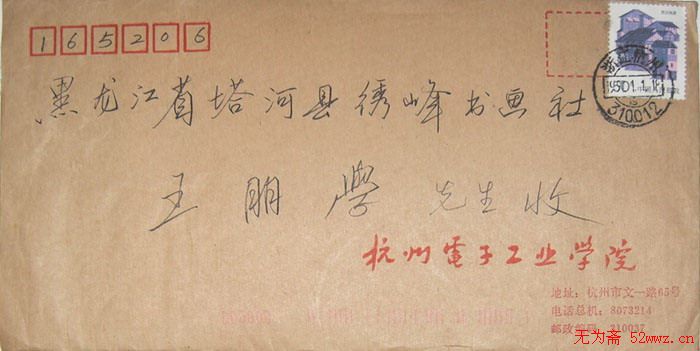 165206
黑龙江省塔河县绣峰书画社
王朋学 先生收
杭州電子工业学院
地址:杭州市文一路65号
电话总机:8073214
邮政编码:310037
310012
无为斋 52wwz.cn